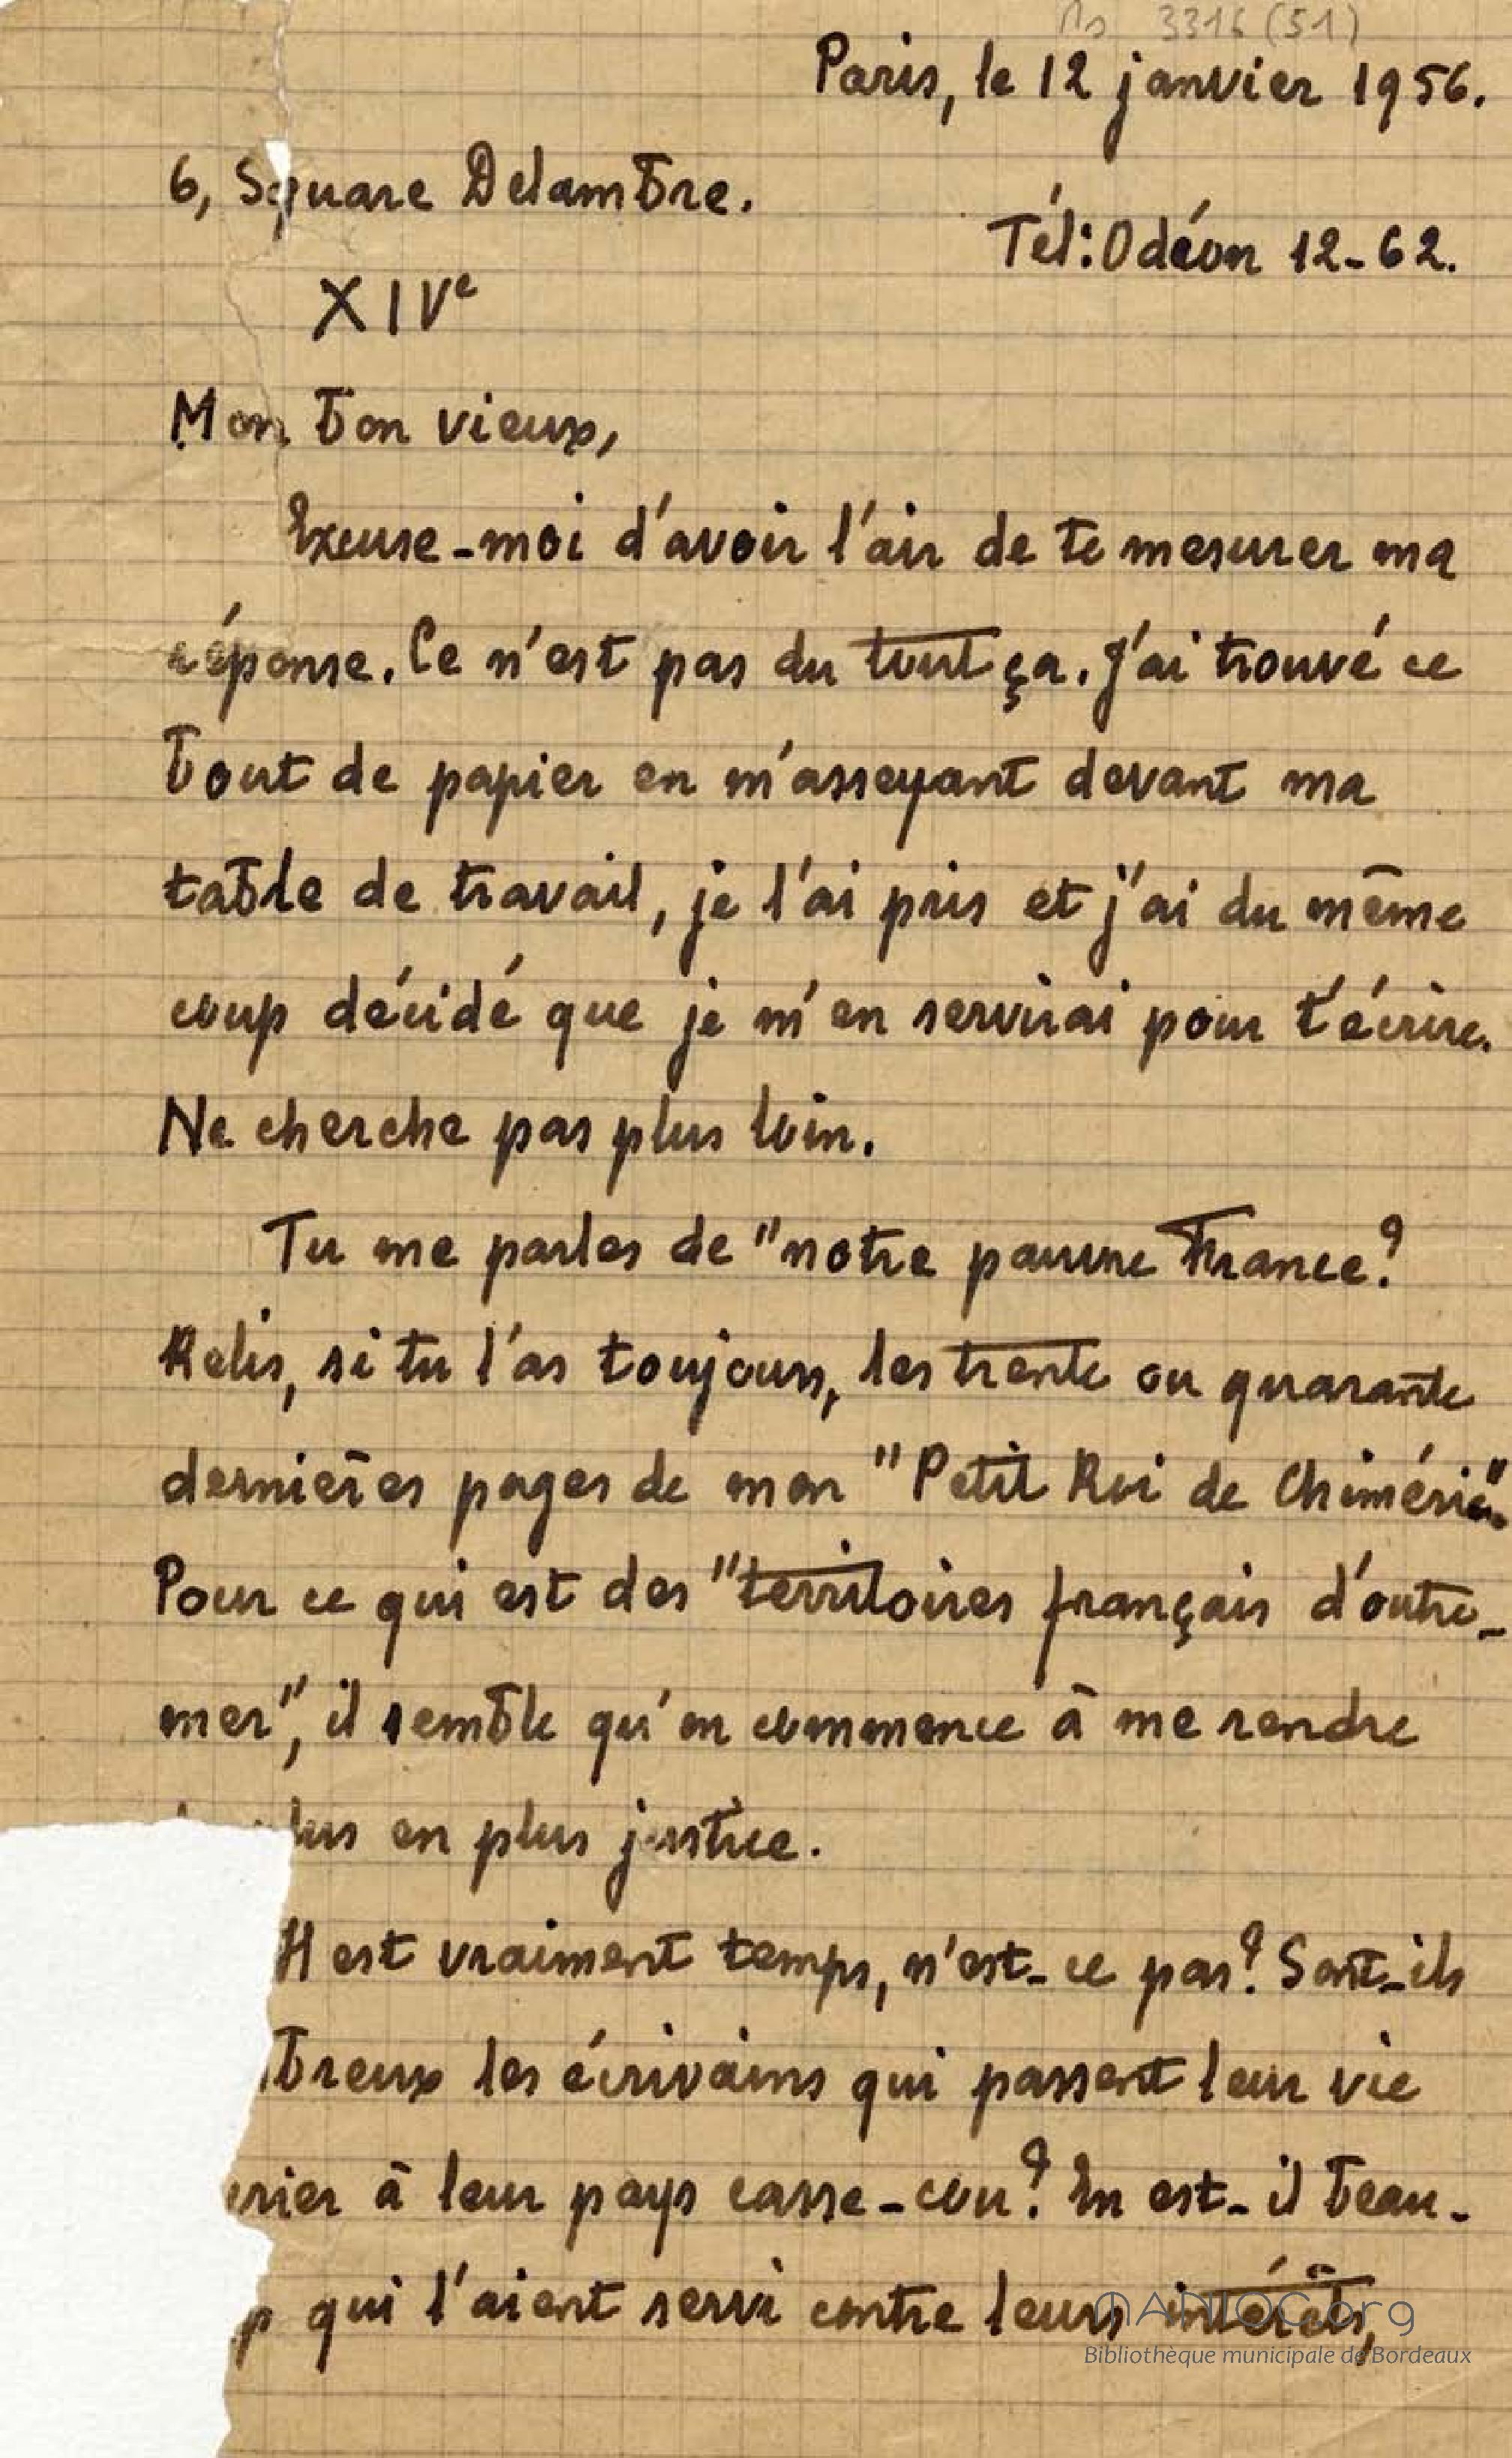 Ms 3316 (51)
Paris, le 12 janvier 1956.
6, Square Delambre.
Tél: Odéon 12-62.
XIVe
Mon bon vieux,
Excuse-moi d'avoir l'air de te mesurer ma
réponse. Ce n'est pas du tout ça. J'ai trouvé ce
bout de papier en m'asseyant devant ma
table de travail, je l'ai pris et j'ai du même
coup décidé que je m'en servirai pour t'écrire.
Ne cherche pas plus loin.
Tu me parles de "notre pauvre France?
Relis, si tu l'as toujours, les trente ou quarante
dernières pages de mon "Petit Roi de Chimérie".
Pour ce qui est des "territoires français d'outre-
mer", il semble qu'on commence à me rendre
lus en plus justice.
Il est vraiment temps, n'est-ce pas? Sont-ils
breux les écrivains qui passent leur vie
rier à leur pays casse-cou? En est-il beau-
p qui l'aient servi contre leurs intérêts,
MANIOC.org
Bibliothèque municipale de Bordeaux